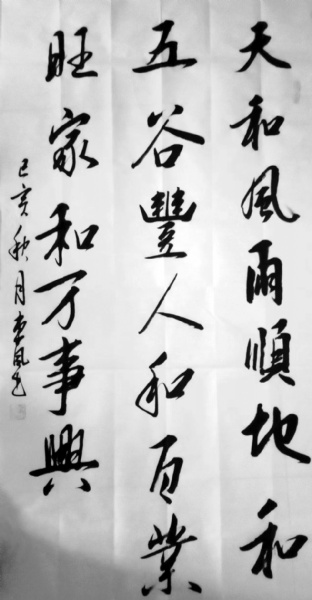 天和風雨順地和
五谷豐人和百業
旺家和万事興
己亥秋月李凤芝